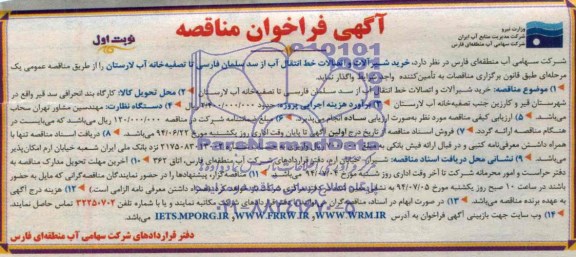 وزارت نیرو
شرکت مدیریت منابع آب ایران
شرکت سهامی آب منطقه‌ای فارس
آگهی فراخوان مناقصه
نوبت اول
شرکت سهامی آب منطقه‌ای فارس در نظر دارد، خرید شیرآلات و اتصالات خط انتقال آب از سد سلمان فارسی تا تصفیه‌خانه آب لارستان را از طریق مناقصه عمومی یک
مرحله‌ای طبق قانون برگزاری مناقصات به تأمین‌کننده واجد شرایط واگذار نماید.
۱) موضوع مناقصه: خرید شیرآلات و اتصالات خط انتقال آب از سد سلمان فارسی تا تصفیه‌خانه آب لارستان ۲) محل تحویل کالا: کارگاه بند انحرافی سد قیر واقع در
شهرستان قیر و کارزین جنب تصفیه‌خانه آب لارستان ۳) برآورد هزینه اجرایی پروژه: حدود ریال ۴) دستگاه نظارت: مهندسین مشاور تهران سحاب
می‌باشد. ۵) ارزیابی کیفی مناقصه مورد نظر به‌صورت ارزیابی ساده انجام می‌پذیرد. ۶) مبلغ ضمانتنامه شرکت در مناقصه ۱۲۰/۰۰۰/۰۰۰ ریال می‌باشد که می‌بایست در
هنگام مناقصه ارائه گردد. ۷) فروش اسناد مناقصه از تاریخ درج اولین آگهی تا پایان وقت اداری روز یکشنبه مورخ ۹۴/۰۶/۲۲ می‌باشد. ۸) دریافت اسناد مناقصه تنها با
همراه داشتن معرفی‌نامه کتبی و در قبال ارائه فیش بانکی به نزد بانک ملی ایران شعبه خیابان ارم امکان‌پذیر
می‌باشد. ۹) نشانی محل دریافت اسناد مناقصه: شیراز، خیابان ارم، دفتر قراردادهای شرکت آب منطقه‌ای فارس، اتاق ۳۶۲ ۱۰) آخرین مهلت تحویل مدارک مناقصه به
دفتر حراست و امور محرمانه شرکت تا آخر وقت اداری روز یکشنبه مورخ می‌باشد. ۱۱) پیشنهادها را در حضور نمایندگان مناقصه‌گرانی که مایل به حضور
باشند در ساعت ۱۰ صبح روز یکشنبه مورخ ۹۴/۰۷/۰۵ به همراه داشتن معرفی نامه الزامی است.) ۱۲) هزینه درج آگهی
به عهده برنده مناقصه می‌باشد. ۱۳) در صورت ابهام در اسناد، مناقصه‌گران قراردادهای شرکت مکاتبه نمایند و یا با شماره تلفن ۳۲۲۵۰۷۰۲ تماس حاصل نمایند.
۱۴) وب سایت جهت بازبینی آگهی فراخوان به آدرس WWW.WRM.IR و WWW.FRRW.IR و IETS.MPORG.IR می‌باشد.
دفتر قراردادهای شرکت سهامی آب منطقه‌ای فارس
ParsNamadData
۰۲۱-۸۸۳۴۹۶۷۰-۵